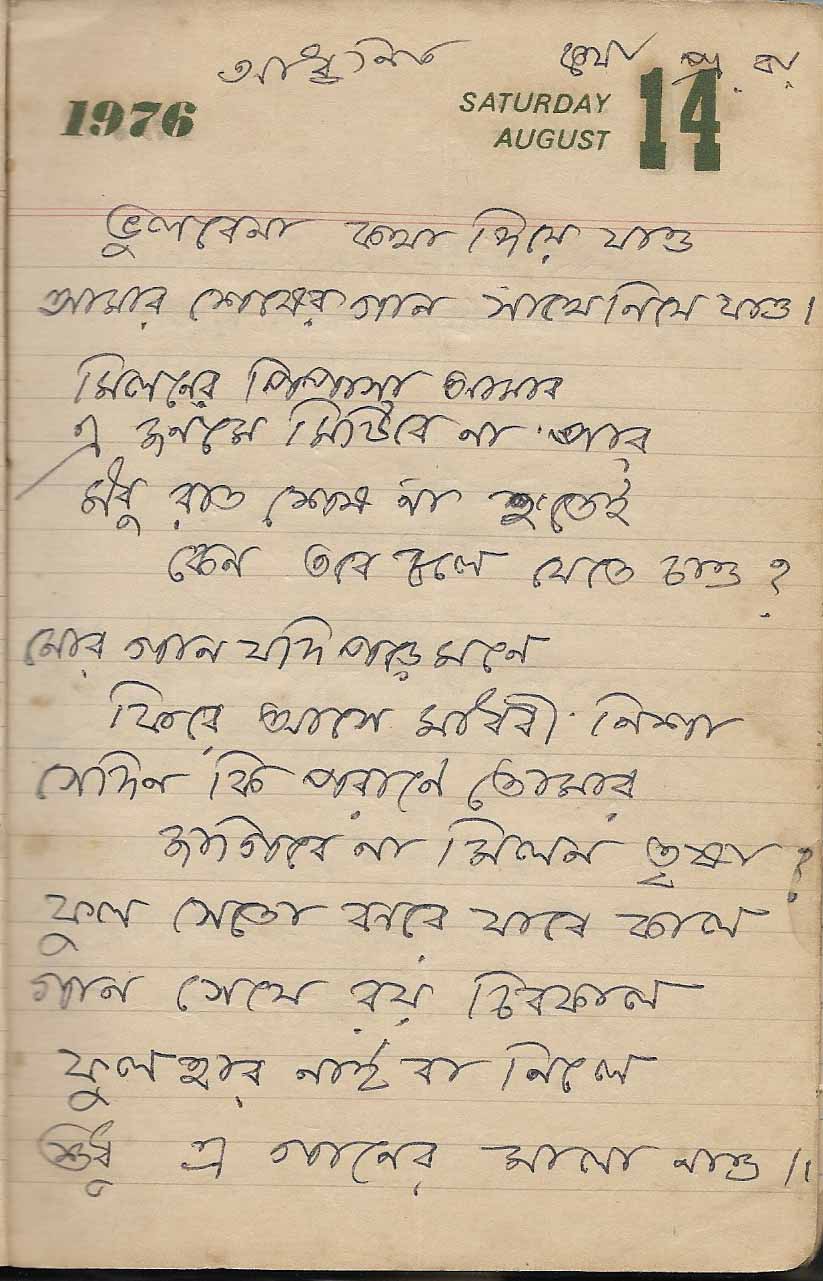 আধুনিক কথা ও সুর
1976 SATURDAY AUGUST 14
ভুলবেনা কথা দিয়ে যাও
আমার শেষের গান সাথে নিয়ে যাও।
মিলনের পিপাসা আমার
এ জনমে মিটিবে না আর
মধু রাত শেষ না হতেই
কেন তবে চলে যেতে চাও?
মোর গান যদি পড়ে মনে
ফিরে আসে মাধবী নিশা
সেদিন কি পরানে তোমার
জাগিবে না মিলন তৃষা?
ফুল সেতো ঝরে যাবে কাল
গান সেযে রয় চিরকাল
ফুলহার নাই বা নিলে
শুধু এ গানের মালা নাও॥